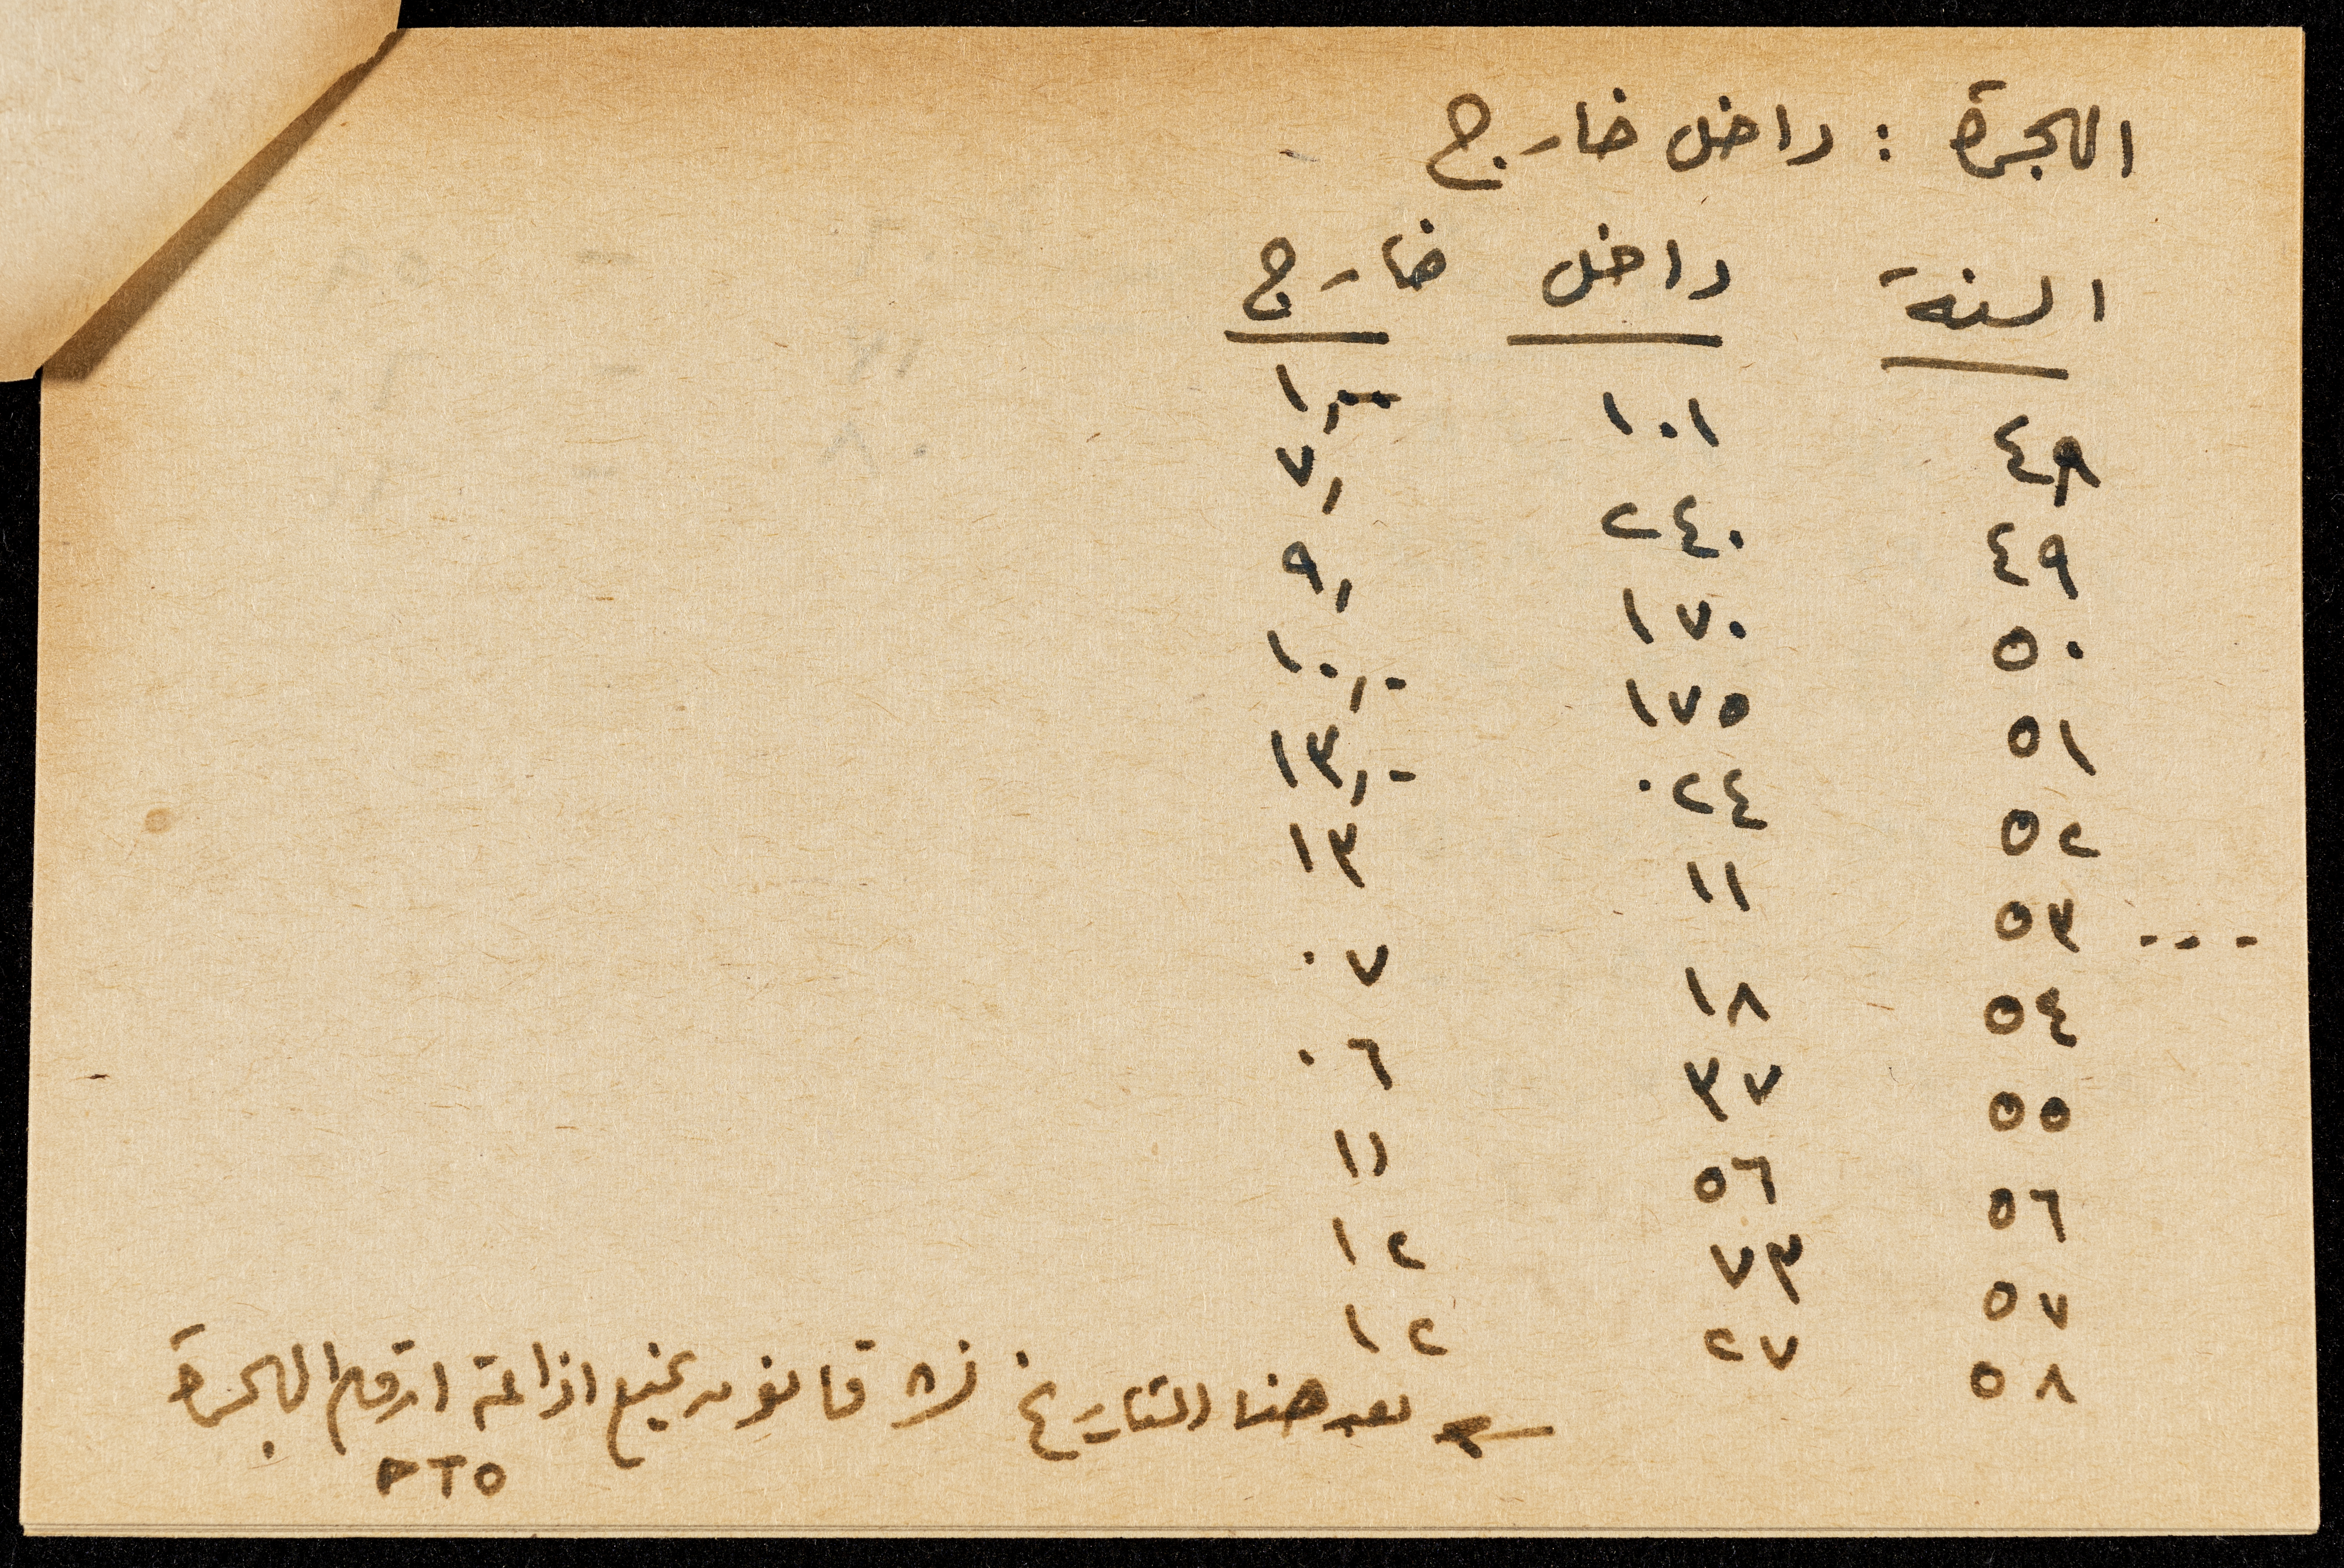 الهجرة : داخل خارج
السنة داخل خارج
٤٨ ١٠١ ١,
٤٩ ٢٤٠ ٧,
٥٠ ١٧٠ ٩,
٥١ ١٧٥ ١٠,-
٥٢ ٢٤ ١٣,-
--- ٥٣ ١١ ١٣
٥٤ ١٨ ٧
٥٥ ٣٧ ٦
٥٦ ٥٦ ١١
٥٧ ٧٣ ١٢
٥٨ ٢٧ ١٢
بعد هذا التاريخ قانون يمنع اذاعة ارقام الهجرة
PTO